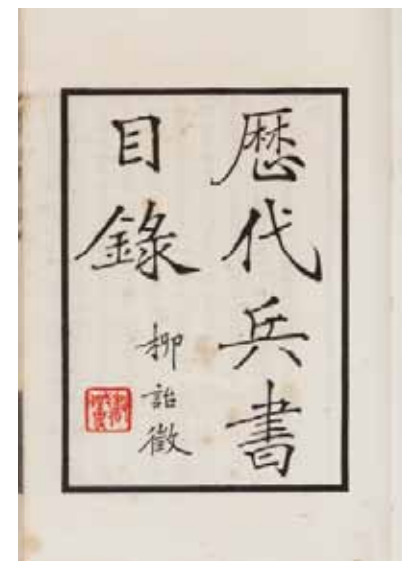 歴代兵書
目錄
柳詒徵